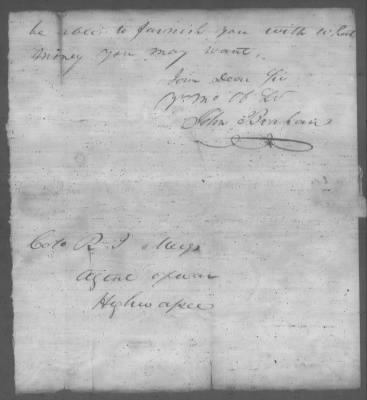 be able to furnish you with what
money you may want.
I am Dear Sir
Yr Mo Ob St
John
Colo R. J. Meigs
Agent of war
Highwassee